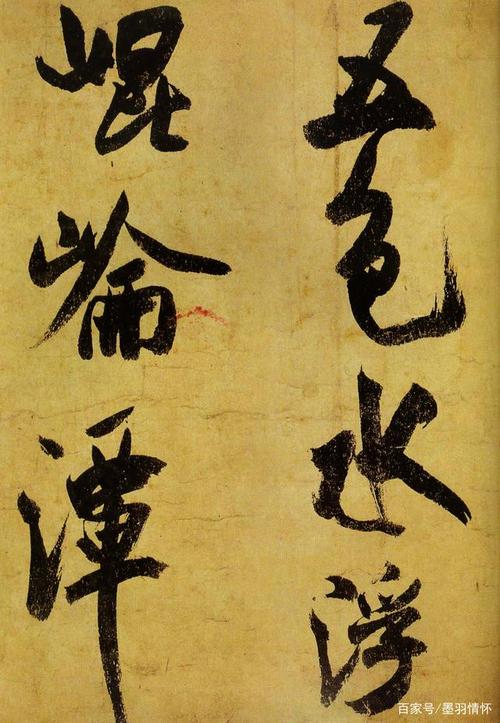 五色水浮
崐崘潭
百家号/墨羽情怀